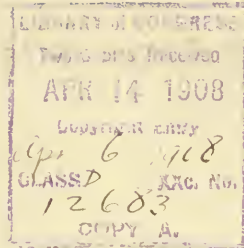 LIBRARY of CONGRESS
Two Copies Received
APR 14 1908
Copyright Entry
Apr 6 1908
CLASS D XXc. No.
12603
COPY A.